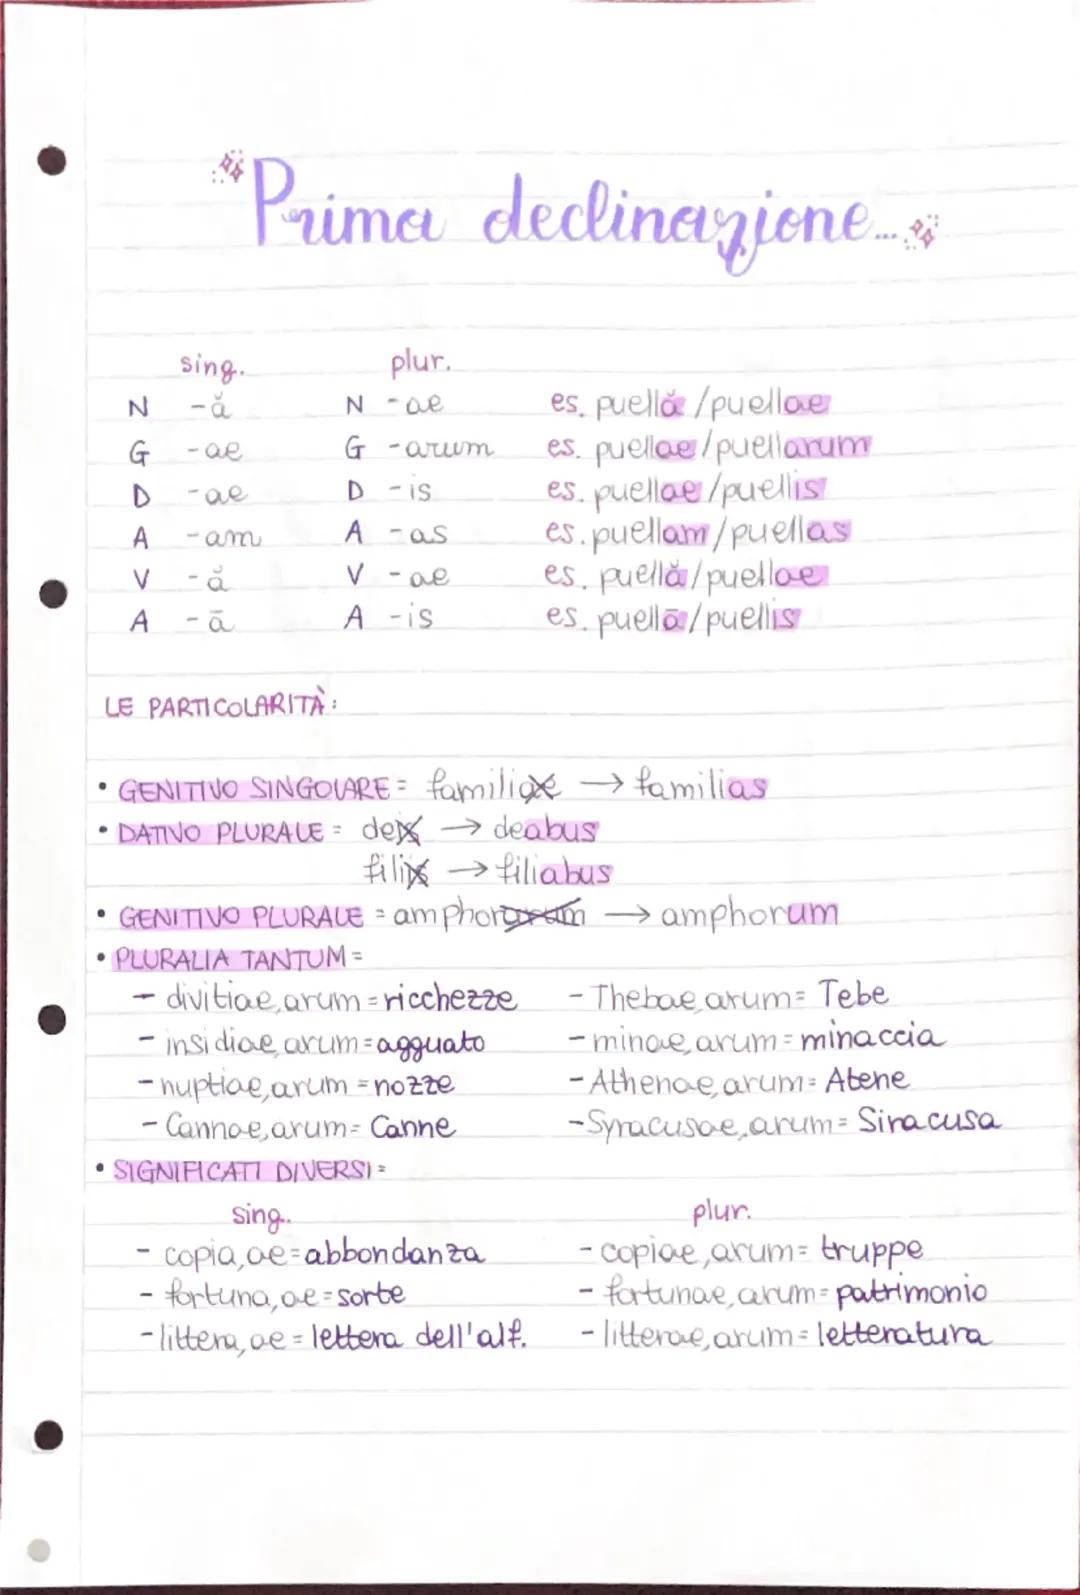 Prima declinazione...
sing. plur.
N -ă N -ae es. puellă/puellae
G -ae G -arum es. puellae/puellarum
D -ae D -is es. puellae/puellis
A -am A -as es. puellam/puellas
V -ă V -ae es. puellă/puellae
A -ā A -is es. puellā/puellis
LE PARTICOLARITÀ:
• GENITIVO SINGOLARE = familiae → familias
• DATIVO PLURALE = deis → deabus
filiis → filiabus
• GENITIVO PLURALE = amphorarum → amphorum
• PLURALIA TANTUM =
- divitiae, arum = ricchezze - Thebae, arum = Tebe
- insidiae, arum = agguato - minae, arum = minaccia
- nuptiae, arum = nozze - Athenae, arum = Atene
- Cannae, arum = Canne - Syracusae, arum = Siracusa
• SIGNIFICATI DIVERSI =
sing. plur.
- copia, ae = abbondanza - copiae, arum = truppe
- fortuna, ae = sorte - fortunae, arum = patrimonio
- littera, ae = lettera dell'alf. - litterae, arum = letteratura